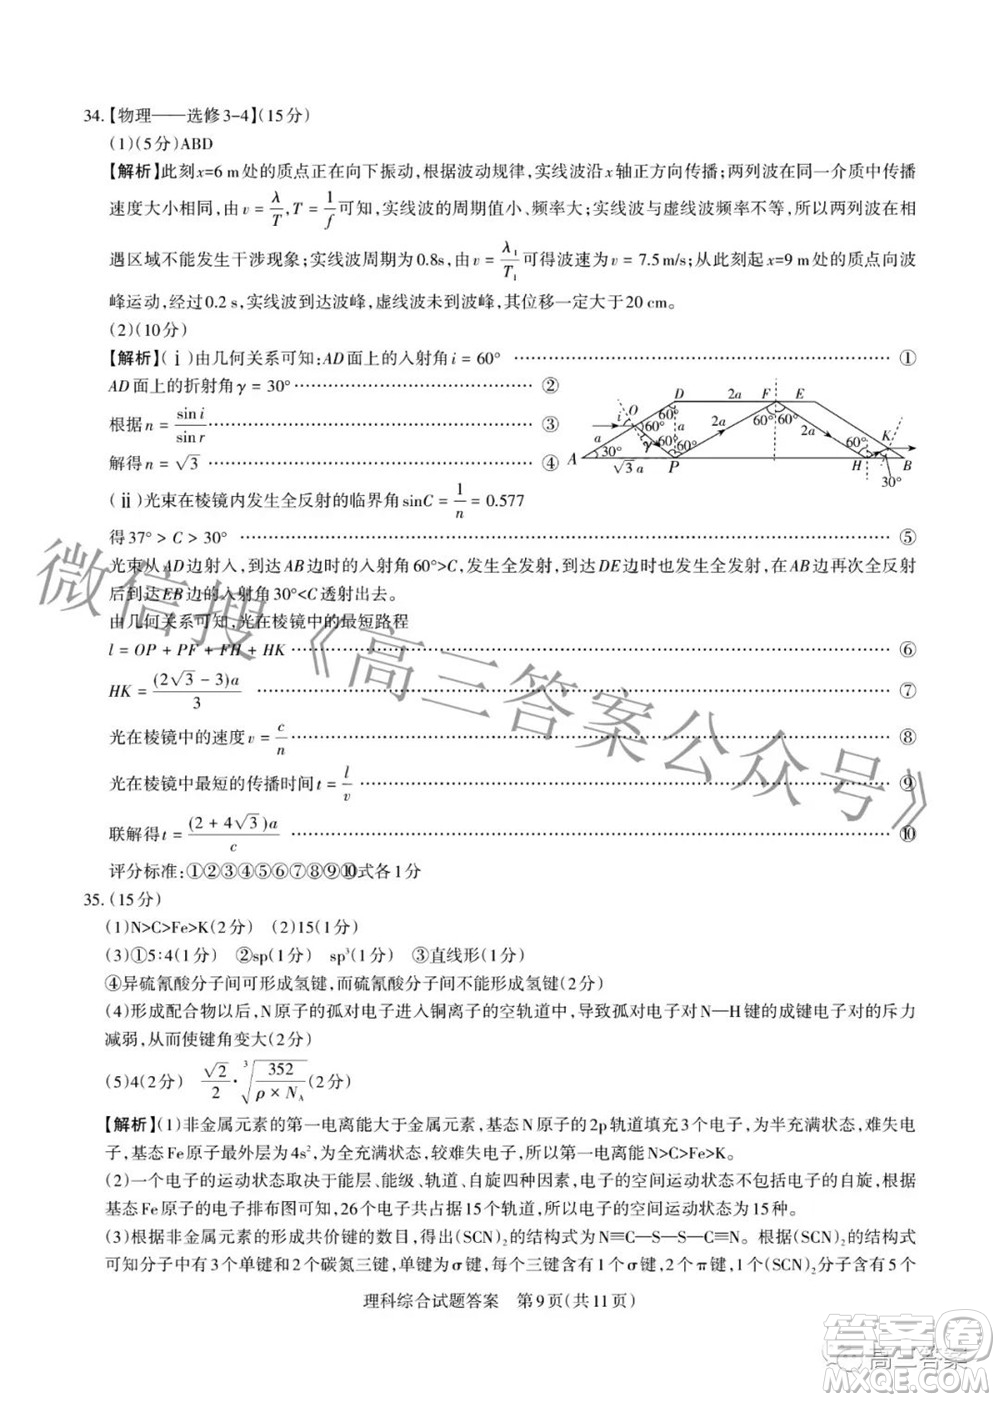 34.【物理——选修3-4】(15分)
(1)(5分)ABD
【解析】此刻x=6 m处的质点正在向下振动,根据波动规律,实线波沿x轴正方向传播;两列波在同一介质中传播
速度大小相同,由v = λ/T, T = 1/f 可知,实线波的周期值小、频率大;实线波与虚线波频率不等,所以两列波在相
遇区域不能发生干涉现象;实线波周期为0.8s,由v = λ₁/T₁ 可得波速为v = 7.5 m/s;从此刻起x=9 m处的质点向波
峰运动,经过0.2 s,实线波到达波峰,虚线波未到波峰,其位移一定大于20 cm。
(2)(10分)
【解析】(ⅰ)由几何关系可知:AD面上的入射角i = 60° ①
AD面上的折射角γ = 30° ②
根据n = sin i/sin r ③
解得n = √3 ④
D 2a F E
O i 60° 60° a 2a 60° 60° 2a K
a A 30° γ 60° 60° 60° B
√3 a P H 30°
(ⅱ)光束在棱镜内发生全反射的临界角sinC = 1/n = 0.577
得37° > C > 30° ⑤
光束从AD边射入,到达AB边时的入射角60°>C,发生全发射,到达DE边时也发生全反射,在AB边再次全反射
后到达EB边的入射角30°<C透射出去。
由几何关系可知,光在棱镜中的最短路程
l = OP + PF + FH + HK ⑥
HK = (2√3 - 3)a/3 ⑦
光在棱镜中的速度v = c/n ⑧
光在棱镜中最短的传播时间t = l/v ⑨
联解得t = (2 + 4√3)a/c ⑩
评分标准:①②③④⑤⑥⑦⑧⑨⑩式各1分
35.(15分)
(1)N>C>Fe>K(2分) (2)15(1分)
(3)①5:4(1分) ②sp(1分) sp³(1分) ③直线形(1分)
④异硫氰酸分子间可形成氢键,而硫氰酸分子间不能形成氢键(2分)
(4)形成配合物以后,N原子的孤对电子进入铜离子的空轨道中,导致孤对电子对N—H键的成键电子对的斥力
减弱,从而使键角变大(2分)
(5)4(2分) √2/2 · ³√(352/(ρ × N_A))(2分)
【解析】(1)非金属元素的第一电离能大于金属元素,基态N原子的2p轨道填充3个电子,为半充满状态,难失电
子。基态Fe原子的最外层为4s²,为全充满状态,较难失电子,所以第一电离能N>C>Fe>K。
(2)一个电子的运动状态取决于能层、能级、轨道、自旋四种因素,电子的空间运动状态不包括电子的自旋,根据
基态Fe原子的电子排布图可知,26个电子共占据15个轨道,所以电子的空间运动状态为15种。
(3)根据非金属元素的形成共价键的数目,得出(SCN)₂的结构式为N≡C—S—S—C≡N。根据(SCN)₂的结构式
可知分子中有3个单键和2个碳氮三键,单键为σ键,每个三键有1个σ键,2个π键,(SCN)₂分子含有5个
理科综合试题答案 第9页(共11页)
微信搜《高三答案公众号》
答案卷
高三答案
MXQE.COM